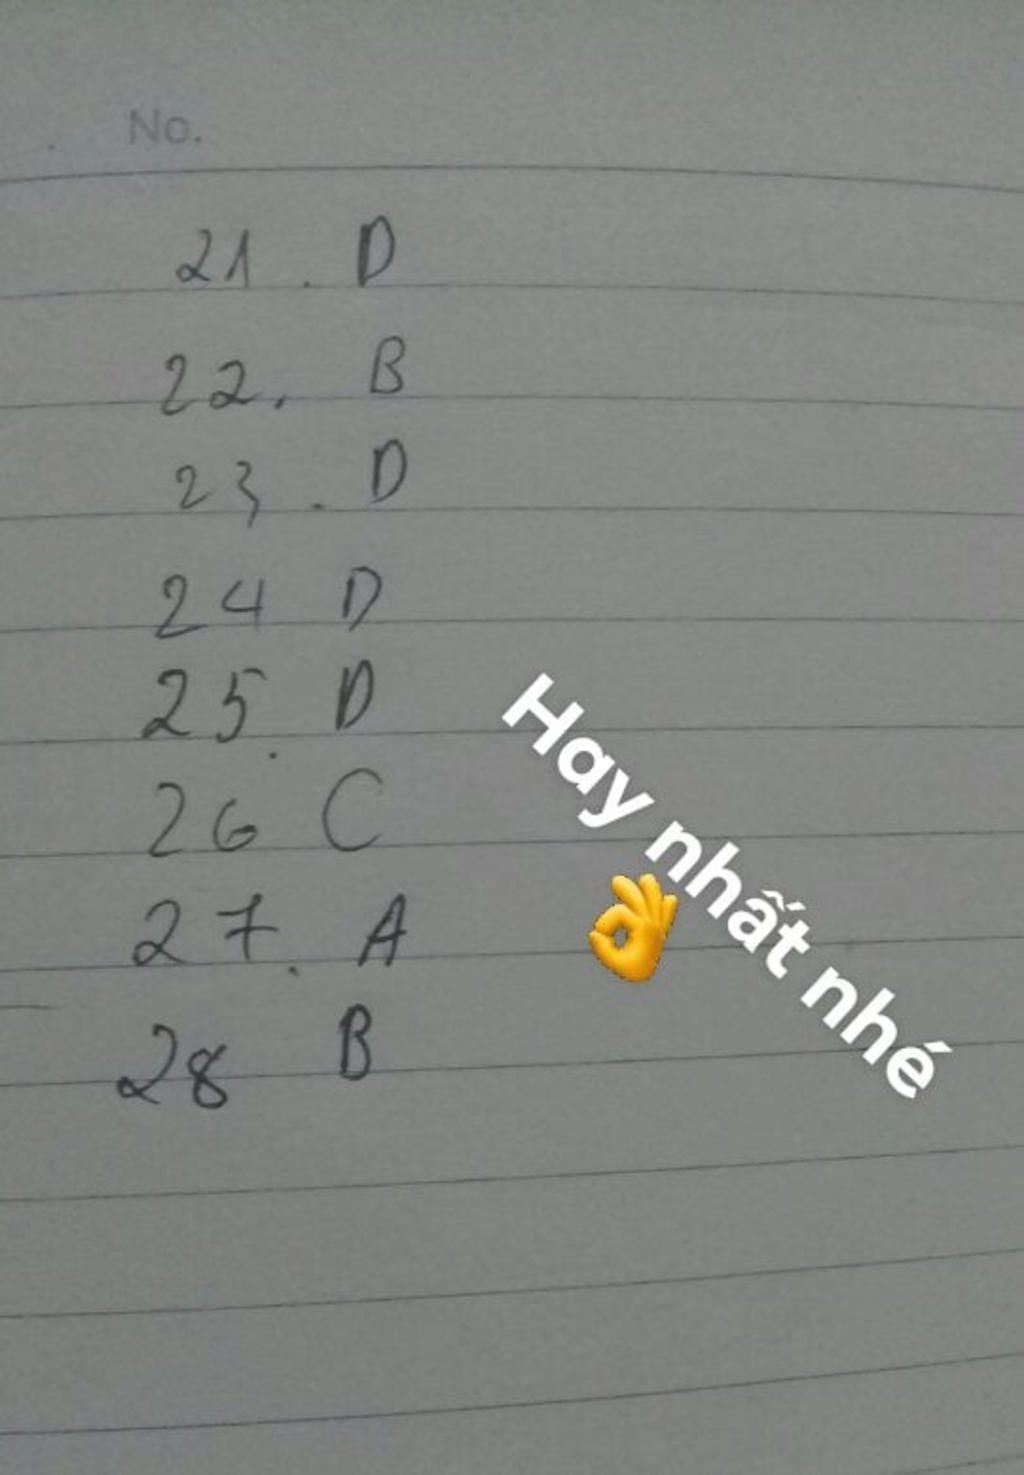 No.
21. D
22. B
23. D
24 D
25. D
26 C
27. A
28 B
Hay nhất nhé